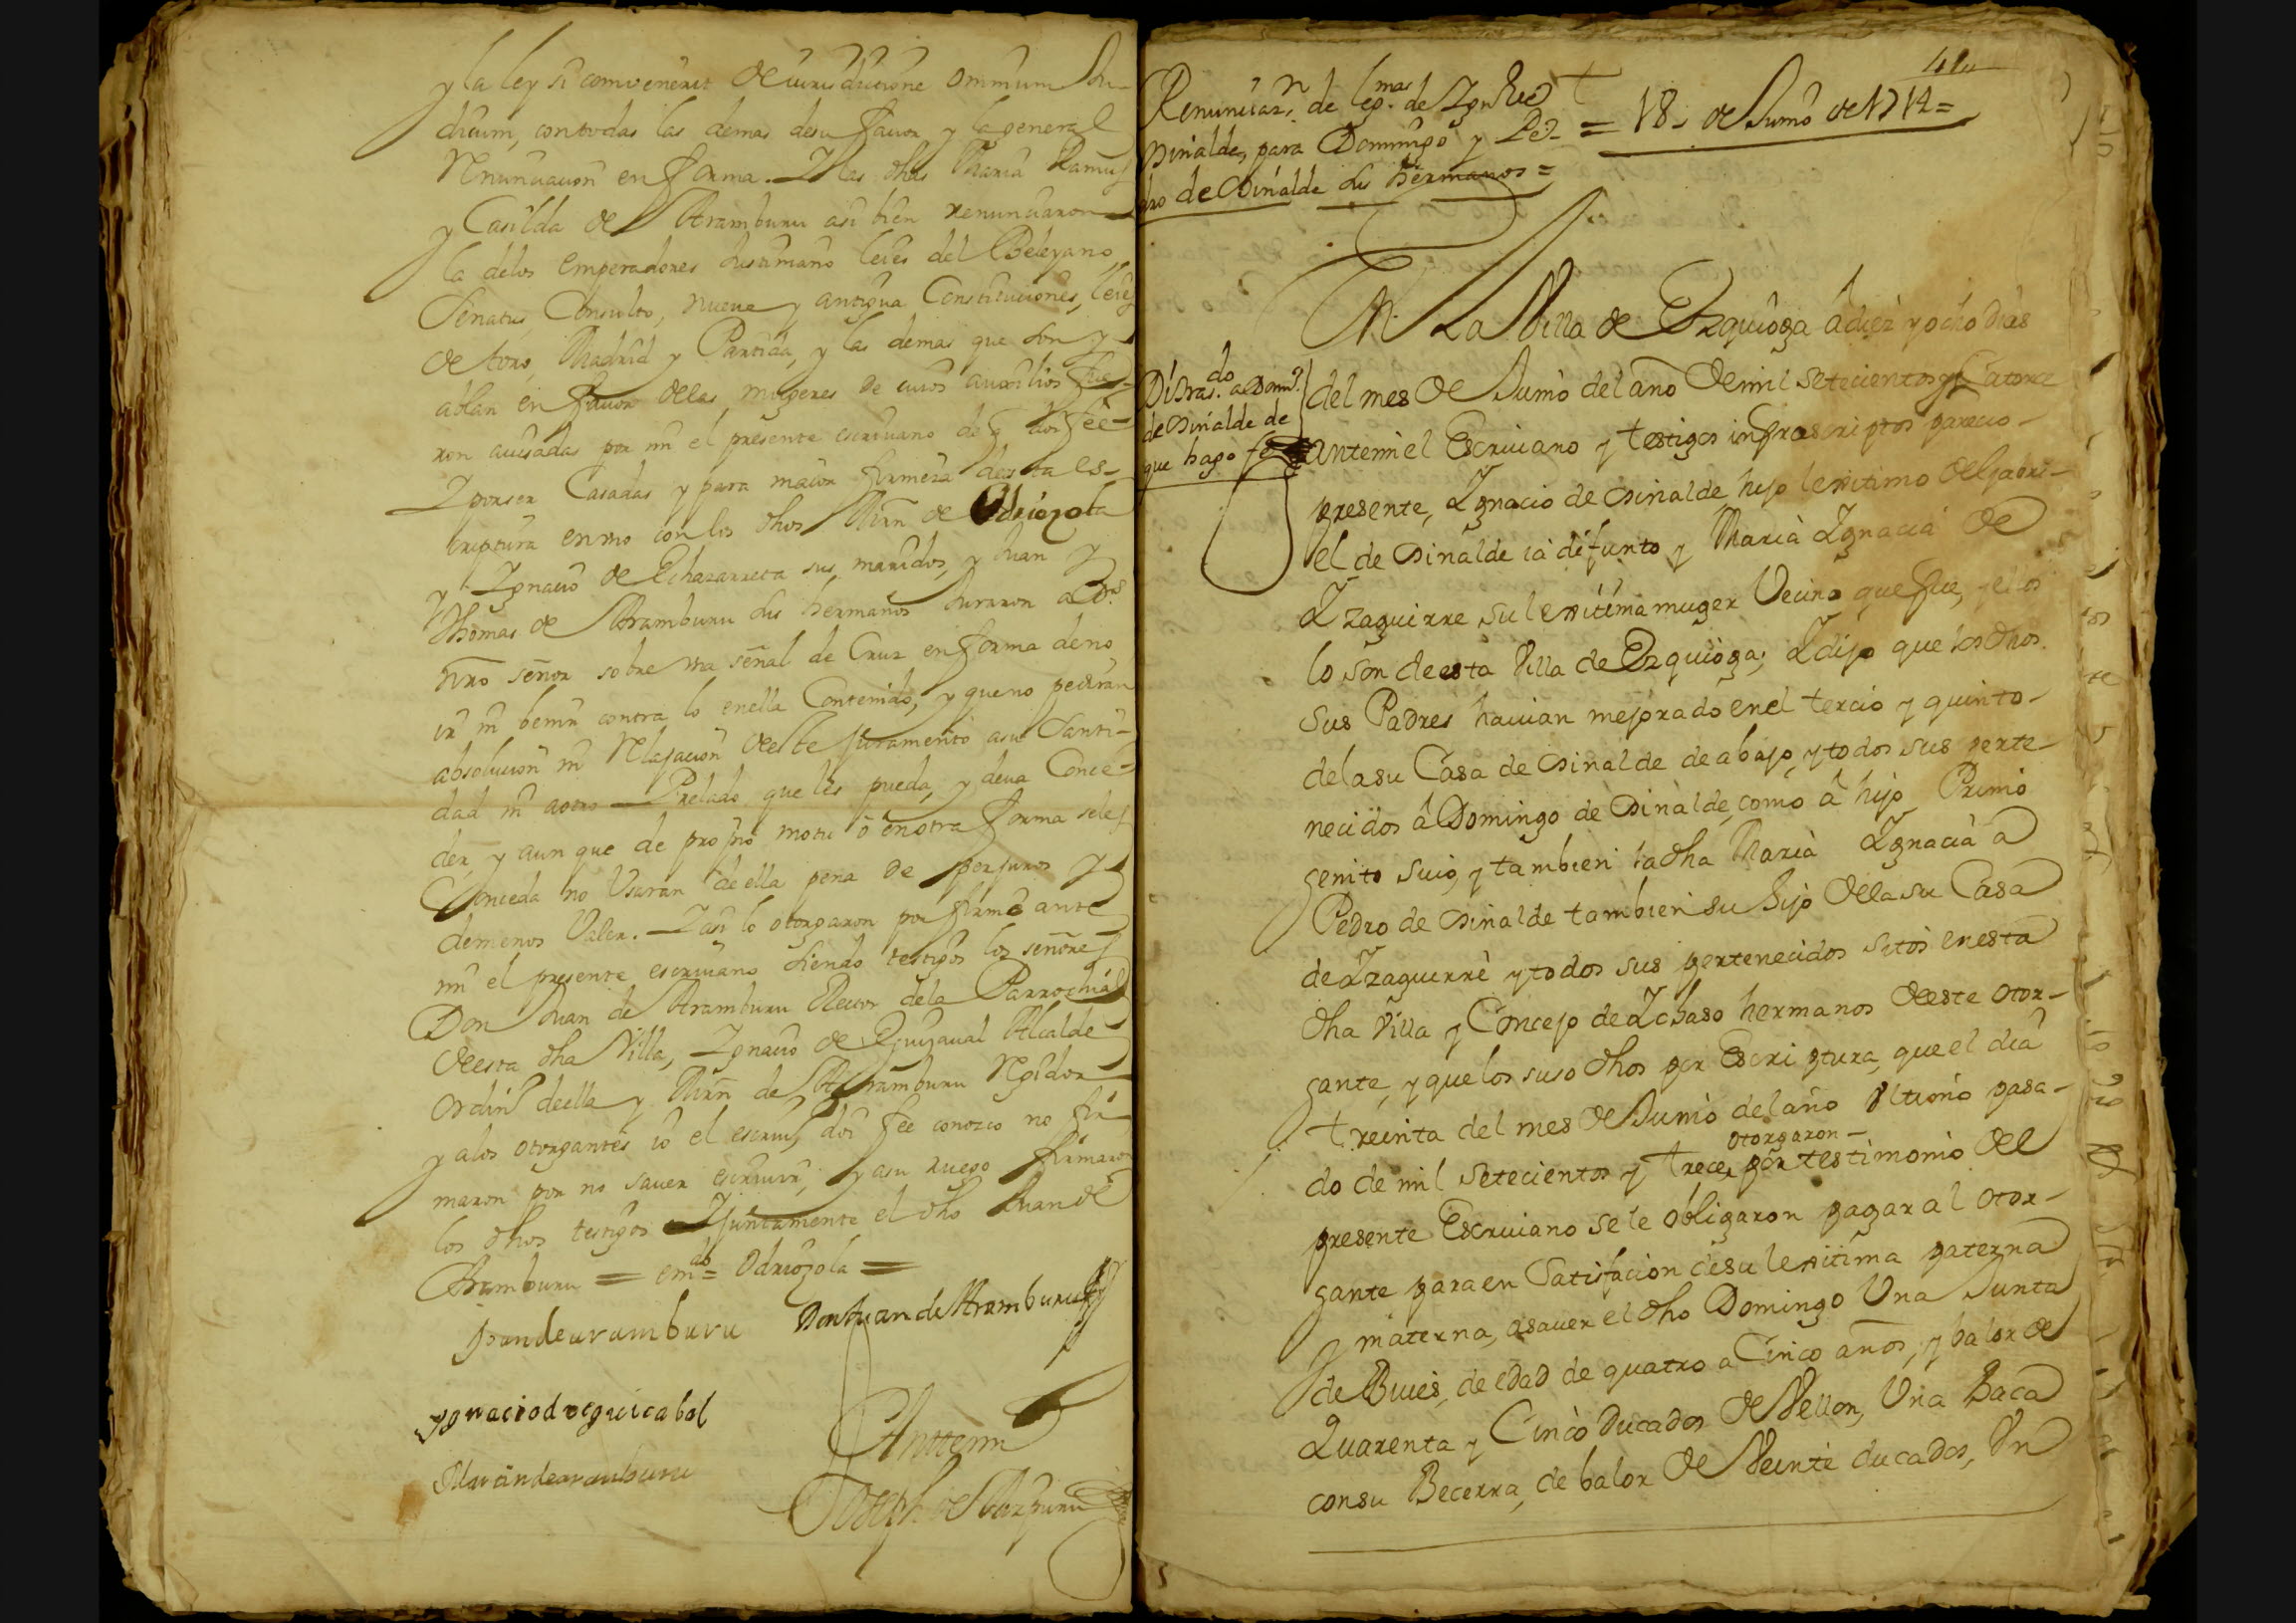 y la ley si combenerit de iurisdicione omnium Ju-
dicum, con todas las demas de su favor y la general
Renunciacion en forma. Y las dhas Maria Ramus
y Casilda de Aramburu asi bien renunciaron
la delos emperadores Justiniano leies del Beleyano
Senatus Consulto, nueva y antigua Constituciones, leies
de toro, Madrid y Partida, y las demas que son y
ablan en favor delas mugeres de cuios auxilios fue-
ron avisadas por mi el presente escrivano de q doi fee
Y por ser Casadas y para maior firmeza desta es-
criptura en uno con los dhos Mrn de Odriozola
y Ignacio de Echazarreta sus maridos, y Juan y
Thomas de Aramburu sus hermanos Juraron a Ds
nro señor sobre una señal de Cruz en forma de no
ir ni benir contra lo en ella Contenido, y que no pediran
absolucion ni Relajacion deste juramento a su Santi-
dad ni a otro Prelado que les pueda, y deva Conce-
der, y aun que de proprio motu ô en otra forma seles
Conceda no Usaran de ella pena de perjuros y
de menos Valer. Y asi lo otorgaron por firme ante
mi el presente escrivano siendo testigos los señores
Don Juan de Aramburu Rector dela Parrochial
de esta dha Villa, Ignacio de Eguizaval Alcalde
Ordino de ella y Mrn de Aramburu Regidor
y alos otorgantes io el escrivo doi fee conozco no fir-
maron por no saver escrivir, y a su ruego firmaron
los dhos testigos Y juntamente el dho Juan de
Aramburu = emdo = Odriozola =
Juan de aramburu Don Juan de Aramburu
ygnacio de eguicabal
Martin de aramburu
Antemi
Joseph de Aizpuru
Renunciaon. de legmas. de Ygnacio
Dinalde, para Domingo y Pe-
dro de Dinalde sus hermanos =
= 18 de Junio de 1714 =
En La Villa de Ezquioga â diez y ocho dias
Dî tras.do a Domo.
de Dinalde de
que hago fe
del mes de Junio del año de mil setecientos y Catorce
ante mi el Escrivano y testigos infraescriptos parecio
presente, Ygnacio de Dinalde, hijo lexitimo de Gabri-
el de Dinalde ia difunto y Maria Ygnacia de
Yzaguirre su lexitima muger Vecino que fue, y ellos
lo son de esta Villa de Ezquioga; Y dijo que los dhos
sus Padres havian mejorado en el tercio y quinto
de la su Casa de Dinalde de abajo, y todos sus perte-
necidos â Domingo de Dinalde, como â hijo Primo
genito suio, y tambien la dha Maria Ygnacia a
Pedro de Dinalde tambien su hijo de la su Casa
de Yzaguirre y todos sus pertenecidos sitos en esta
dha Villa y Concejo de Ychaso hermanos de este otor-
gante, y que los suso dhos por Escriptura, que el dia
treinta del mes de Junio del año Ultimo pasa-
otorgaron
do de mil setecientos y trece, por testimonio del
presente Escrivano se le obligaron pagar al otor-
gante para en Satisfacion de su lexitima paterna
y materna, asaver el dho Domingo Una Junta
de Bueis, de edad de quatro a Cinco años, y balor de
Quarenta y Cinco Ducados de Vellon, Una Baca
con su Becerra, de balor de Veinte ducados, Un